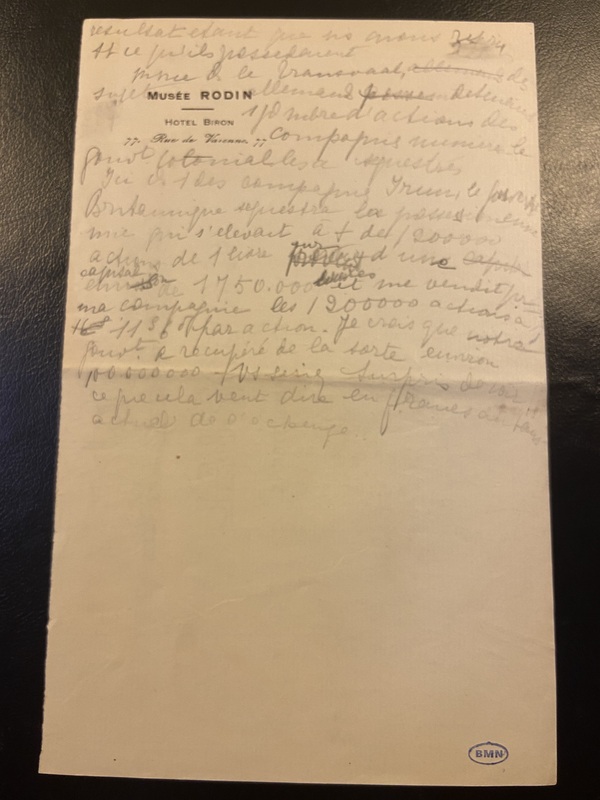 resultat etant que ns avons
tt ce qu'ils possedaient
Mme de le Transvaal, allemands des
sujets allemands detenteurs
MUSÉE RODIN
gd nmbre d'actions des
HOTEL BIRON
77, Rue de Varenne, 77
Compagnies minieres le
gouvt colonial les a sequestrés
Ici ds 1 des compagnies le
Britannique sequestra la possession
mie qui s'elevait à + de 1200000
actions de 1 livre sur d'une capital
capital
de 1750.000 et me vendit
ma compagnie les 1200000 actions à
par action. Je crois que notre
gouvt a récupéré de la sorte environ
£ vs seriez surpris de voir
ce que cela veut dire en francs au
actuel de l'echange.
BMN